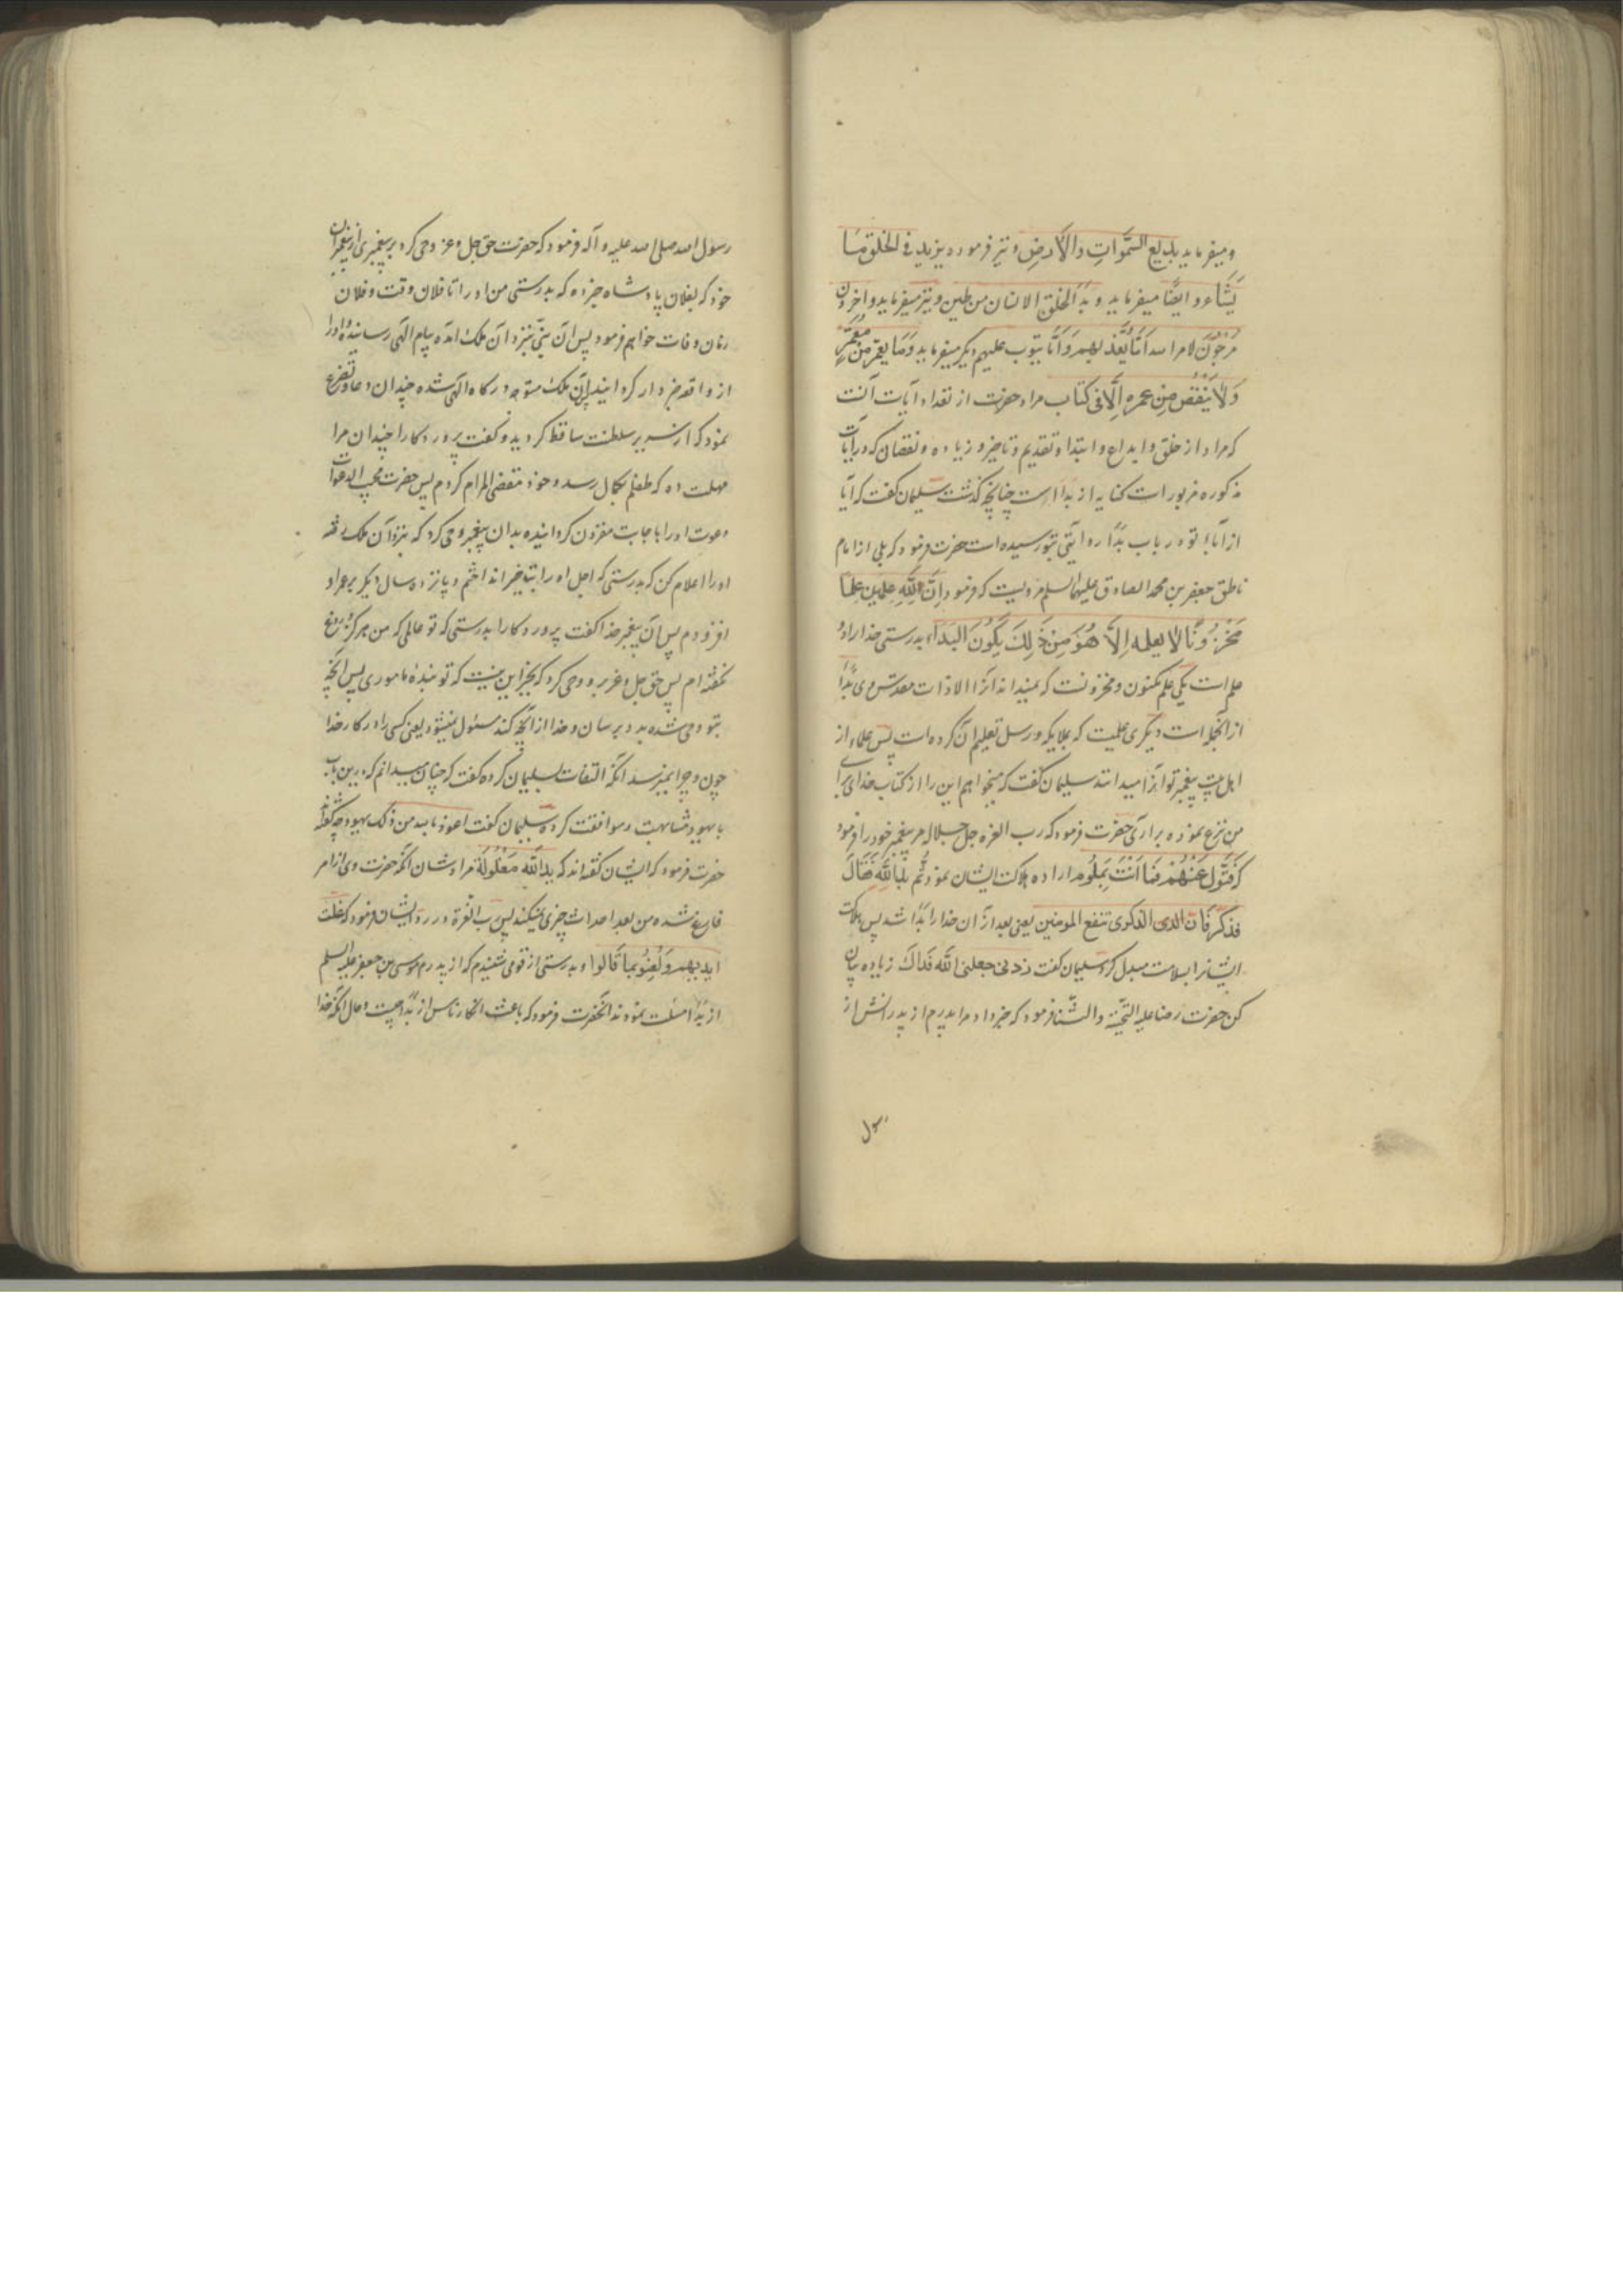 ومیفرماید بدیع السَّمٰواتِ والاَرضِ ونیز فرمود ویزید فی الخلق مَا
یَشَاء و ایضًا میفرماید و بَدَأ خلق الانسان من طین ونیز میفرماید و اخرون
مرجَوْنَ لامر اسه اَمّا یُعَذّ بهم وَ اَمّا یتوب علیهم دیگر میفرماید وَمَا یعمر مِنْ مُعَمَّرٍ
وَلاَ یَنْقُصُ مِن عمره اِلَّا فی کتاب مراد حضرت از تعداد آیات آنست
که مراد از خلق و ابداع و ابتدا و تقدیم و تاخیر و زیاده و نقصان که در آیات
مذکوره مزبور است کنایه از بَدَا است چنانچه گذشت سلیمان گفت که آیا
از آباء تو در باب بَدَا روایتی بتو رسیده است حضرت فرمود که بلی از امام
ناطق جعفر بن محمد الصادق علیهما السلم مرویست که فرمود اِنَّ لِلّهِ علمین علمًا
مَخْزُونًا لا یعلمه اِلاَّ هُوَ مِنْ ذَلِكَ یَكُونَ البدَاَء بدرستی خدا را دو
علم است یکی علم مکنون و مخزونست که نمیداند آنرا الا ذات مقدّس وی بَدَا
از آنجمله است دیگری علمیست که بملایکه و رسل تعلیم آن کرده است پس علماء از
اهل بیت پیغمبر تو آنرا میدانند سلیمان گفت که میخواهم این را از کتاب خدای برای
من نزع نموده برآری حضرت فرمود که رب العزه جل جلاله مر پیغمبر خود را فرمود
که فَتَوَّل عَنْهُمْ فَمَا اَنْتَ بِمَلُوم اراده هلاکت ایشان نمود ثُّم بَدَا لِلّهِ فَقَالَ
فذکّر فَاِن الذی الذکری تنفع المومنین یعنی بعد از آن خدا را بَدَا شد پس هلاکت
ایشانرا بسلامت مبدل کرد سلیمان گفت زدنی جعلنی اللّه فَدَاكَ زیاده بیان
کن حضرت رضا علیه التحیّة والثّنا فرمود که خبر داد مرا پدرم از پدرانش از
رسول
رسول اسه صلی اسه علیه و آله فرمود که حضرت حق جل و عز وحی کرد بر پیغمبری از پیغمبران
خود که بفلان پادشاه خبر ده که بدرستی من او را تا فلان وقت و فلان
زمان وفات خواهم فرمود پس آن نبیّ بنزد آن ملک آمده پیام الهی رسانیده او را
از واقعه خبردار گردانید پس آن ملک متوجه درگاه الهی شده چندان دعا و تضرع
نمود که از سریر سلطنت ساقط گردید و گفت پروردگارا چندان مرا
مهلت ده که طفلم بکمال رسد و خود متقضی المرام کردم پس حضرت مجیب الدعوات
دعوت او را باجابت مقرون گردانیده بدان پیغمبر وحی کرد که بنزد آن ملک رفته
او را اعلام کن که بدرستی که اجل او را بتاخیر انداختم و پانزده سال دیگر بر عمر او
افزودم پس آن پیغمبر خدا گفت پروردگارا بدرستی که تو عالمی که من هرگز دروغ
نگفته ام پس حق جل و عز برو وحی کرد که بجز این نیست که تو بنده مأموری پس آنچه
بتو وحی شده بدو برسان و خدا از آنچه کند مسئول نمیشود یعنی کسی را در کار خدا
چون و چرا نمیرسد آنگه التفات بسلیمان کرده گفت که چنان میدانم که درین باب
با یهود مشابهت و موافقت کرده سلیمان گفت اعوذ بالله من ذلک یهود چه گفته‌اند
حضرت فرمود که ایشان گفته اند که یداللّه مَغْلُولَة مرادشان آنکه حضرت وی از امر
فارغ شده من بعد احداث چیزی نمیکند پس رب العّزة در رد ایشان فرمود که غلت
ایدیهم ولُعِنُو بمَا قَالوا و بدرستی از قومی شنیدم که از پدرم موسی بن جعفر علیه السلم
از بَدَا مسئلت نمودند آنحضرت فرمود که باعث انکار ناس از بَدَا چیست و حال آنکه خدا